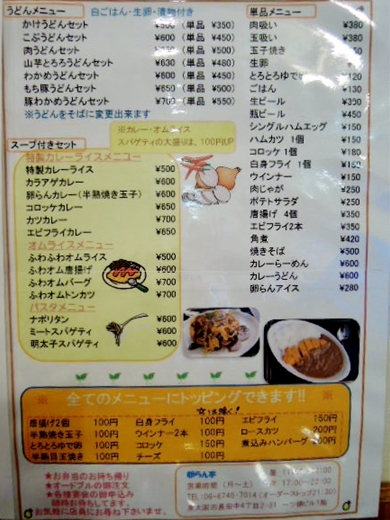 うどんメニュー 白ごはん・生卵・漬物付き
かけうどんセット ¥500 (単品 ¥350)
こぶうどんセット ¥600 (単品 ¥450)
肉うどんセット ¥650 (単品 ¥500)
山芋とろろうどんセット ¥630 (単品 ¥480)
わかめうどんセット ¥600 (単品 ¥450)
もち豚うどんセット ¥650 (単品 ¥500)
豚わかめうどんセット ¥700 (単品 ¥550)
※うどんをそばに変更出来ます
※カレー・オムライス
スパゲティの大盛りは、100円UP
スープ付きセット
特製カレーライスメニュー
特製カレーライス ¥500
カラアゲカレー ¥600
卵らんカレー(半熟焼き玉子) ¥600
コロッケカレー ¥650
カツカレー ¥700
エビフライカレー ¥650
オムライスメニュー
ふわふわオムライス ¥500
ふわオム唐揚げ ¥600
ふわオムバーグ ¥700
ふわオムトンカツ ¥700
パスタメニュー
ナポリタン ¥600
ミートスパゲティ ¥600
明太子スパゲティ ¥600
単品メニュー
肉吸い ¥380
玉吸い ¥380
玉子焼き
生卵
とろとろゆで
ごはん ¥130
生ビール ¥390
瓶ビール ¥450
シングルハムエッグ
ハムカツ 1個
コロッケ 1個
白身フライ 1個
ウインナー
肉じゃが
ポテトサラダ ¥250
唐揚げ 4個 ¥350
エビフライ2本 ¥350
角煮 ¥420
焼きそば ¥500
カレーらーめん ¥600
カレーうどん ¥600
卵らんアイス ¥280
※ 全てのメニューにトッピングできます!! ※
唐揚げ2個 100円 白身フライ 100円 エビフライ 150円
半熟焼き玉子 100円 ウインナー2本 100円 ロースカツ 200円
とろとろゆで卵 100円 コロッケ 150円 煮込みハンバーグ 200円
半熟目玉焼き 100円 チーズ 100円
★お弁当のお持ち帰り
★オードブルの御注文
★各種宴会の御申込み
随時お待ちしてます
お気軽に店員にお尋ね下さいませ。
卵らん亭
営業時間 (月~土)
17:00~22:00
(オーダーストップ21:30)